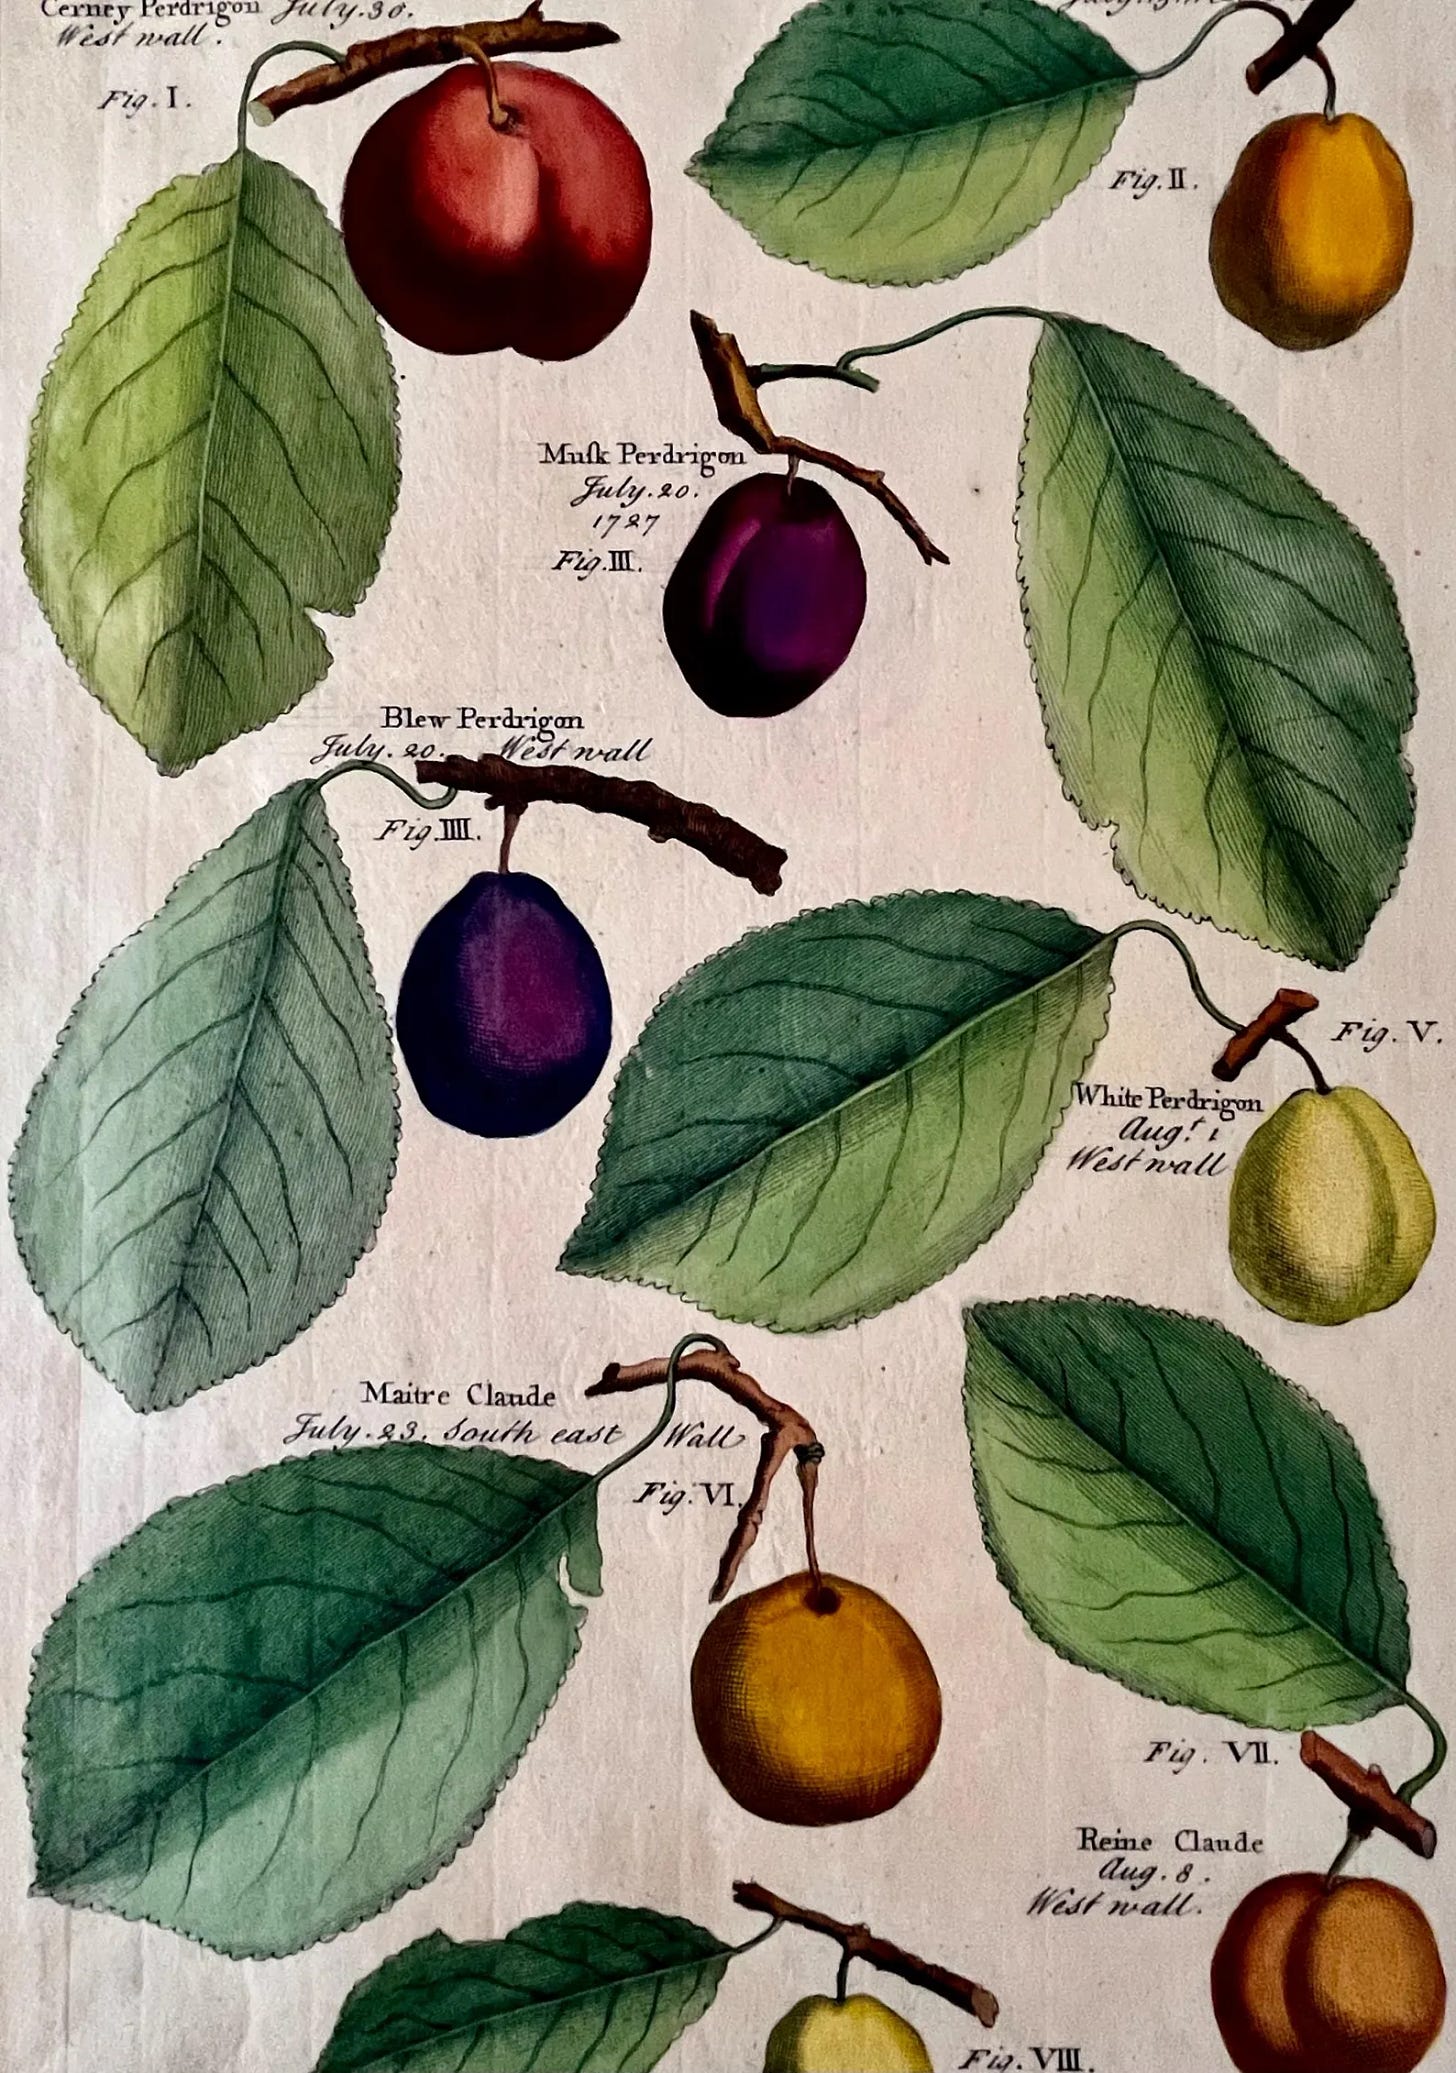 Cerney Perdrigon July. 30.
West wall.
Fig. I.
Fig. II.
Muſk Perdrigon
July. 20.
1727
Fig. III.
Blew Perdrigon
July. 20. West wall
Fig. IIII.
Fig. V.
White Perdrigon
Aug.t 1
West wall
Maitre Claude
July. 23. South east Wall
Fig. VI.
Fig. VII.
Reine Claude
Aug. 8.
West wall.
Fig. VIII.